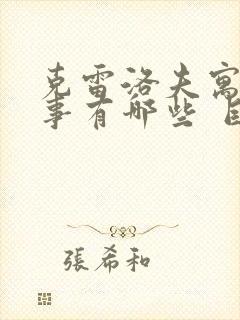 克雷洛夫寓
事有哪些
張希和